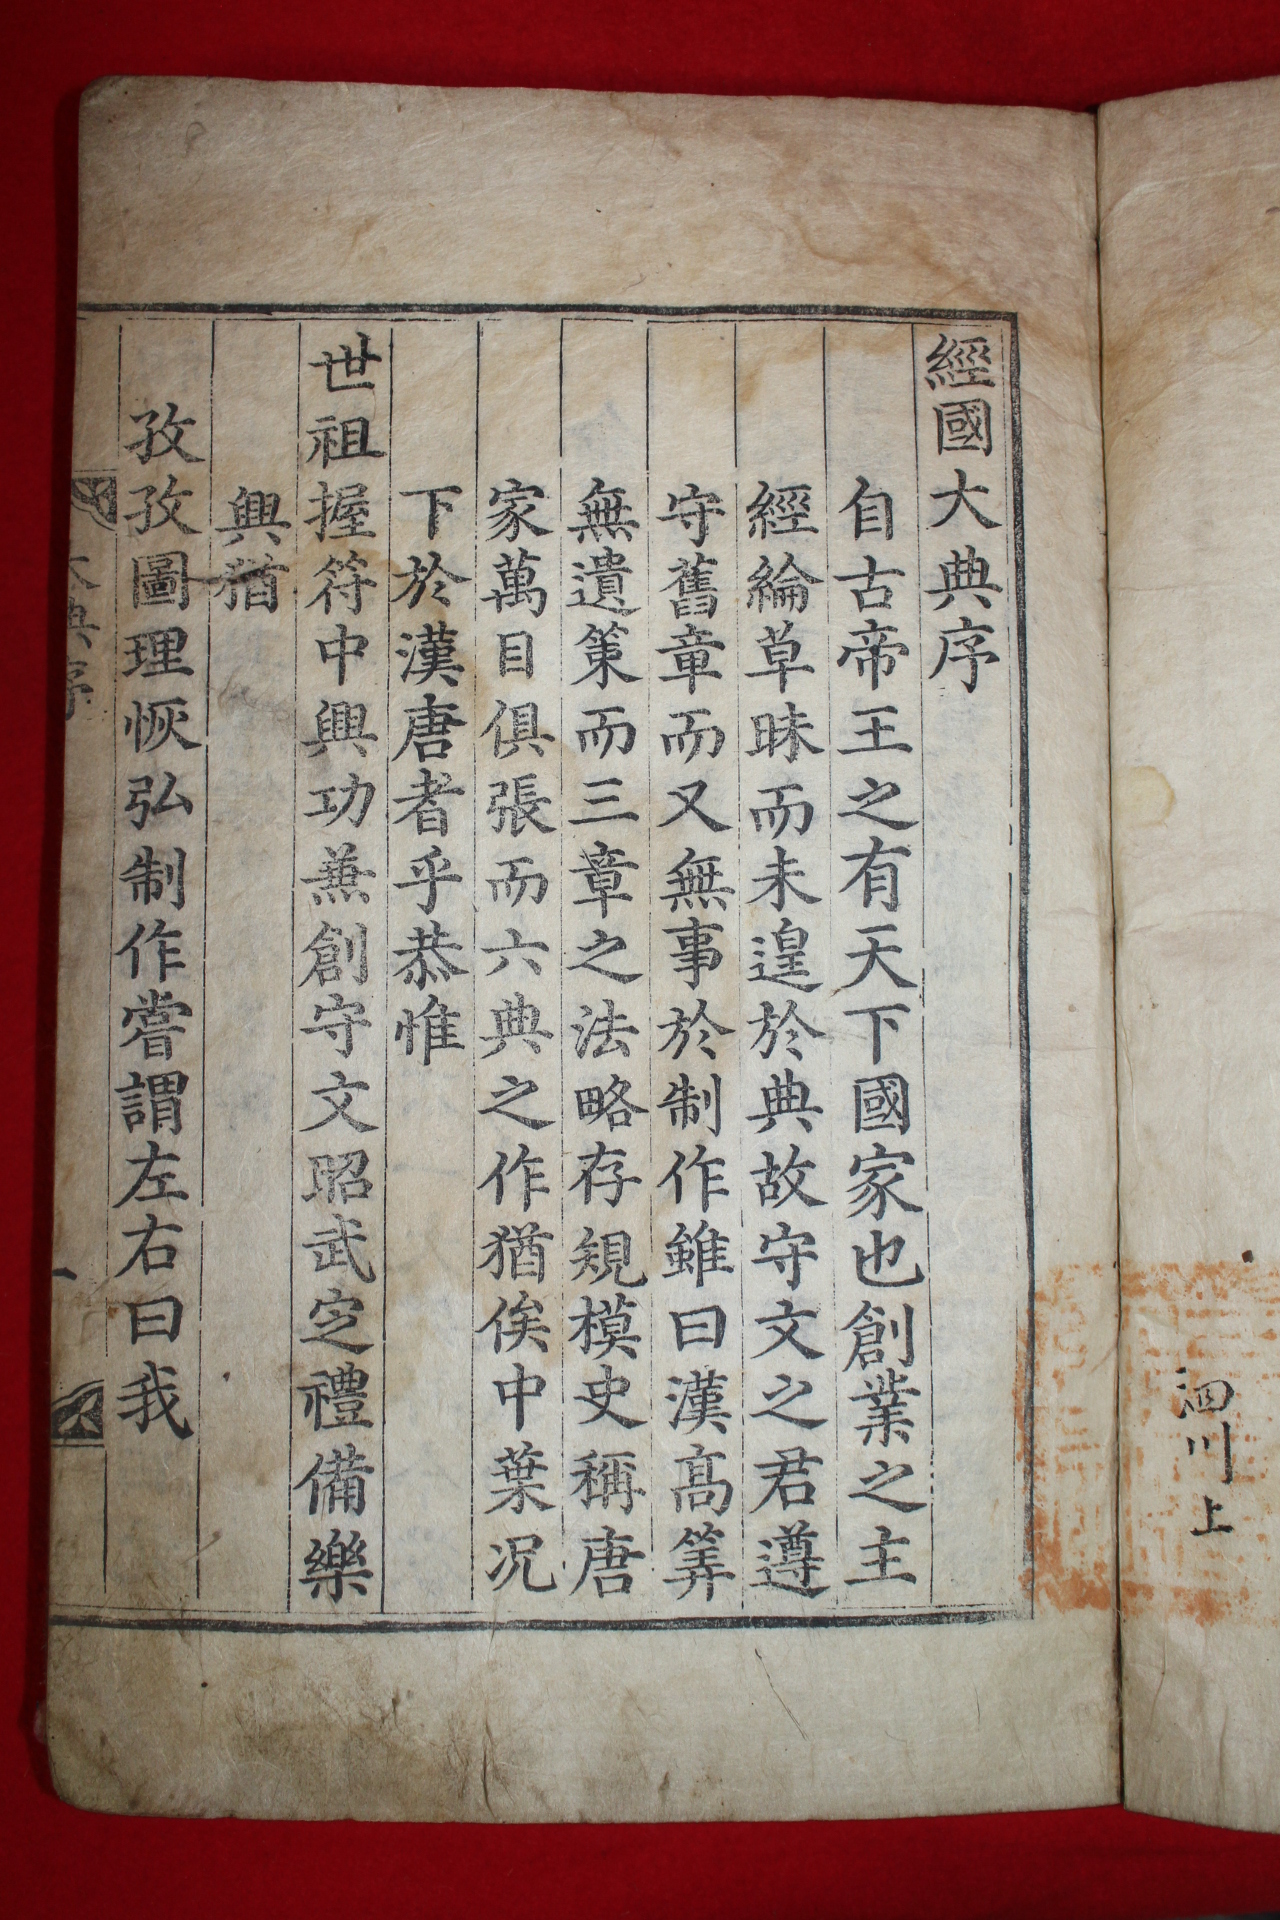 泗川上
經國大典序
自古帝王之有天下國家也創業之主
經綸草昧而未遑於典故守文之君遵
守舊章而又無事於制作雖曰漢高筭
無遺策而三章之法略存規模史稱唐
家萬目俱張而六典之作猶俟中葉况
下於漢唐者乎恭惟
世祖握符中興功兼創守文昭武定禮備樂
興猶
孜孜圖理恢弘制作嘗謂左右曰我
大典序
一